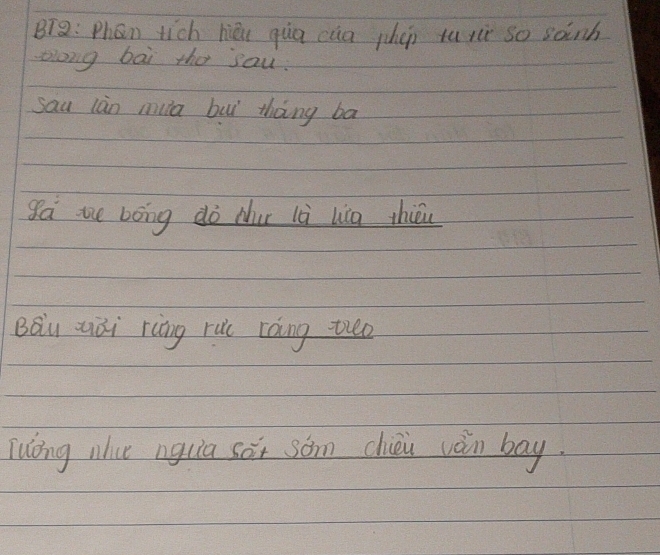 BT2: Phân tích hiệu qủa của phép tu từ so sánh
trong bài thơ sau.
Sau làn mưa bụi tháng ba
Lá tre bỗng đỏ như là lửa thiêu
Bầu trời rừng rực ráng treo
Tưởng như ngựa sắt sớm chiều vẫn bay.